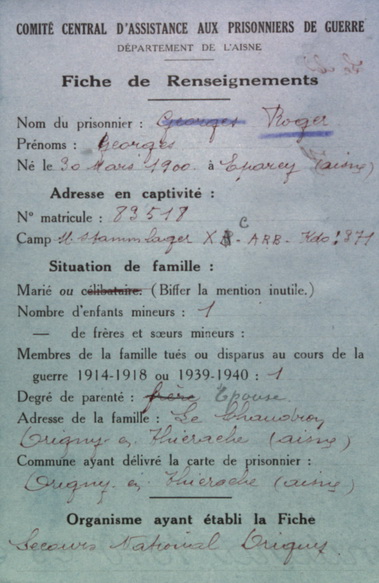 COMITÉ CENTRAL D'ASSISTANCE AUX PRISONNIERS DE GUERRE
DÉPARTEMENT DE L'AISNE
Fiche de Renseignements
Nom du prisonnier : Georges Roger
Prénoms : Georges
Né le 30 Mars 1900 à Eparcy (aisne)
Adresse en captivité :
N° matricule : 83518
Camp M. Stammlager X C - ARB - Kdo : 371
Situation de famille :
Marié ou célibataire. (Biffer la mention inutile.)
Nombre d'enfants mineurs : 1
— de frères et sœurs mineurs :
Membres de la famille tués ou disparus au cours de la
guerre 1914-1918 ou 1939-1940 : 1
Degré de parenté : frère Epouse
Adresse de la famille : Le Chaudron
Origny en Thierache (aisne)
Commune ayant délivré la carte de prisonnier :
Origny en Thierache (aisne)
Organisme ayant établi la Fiche
Secours National Origny.